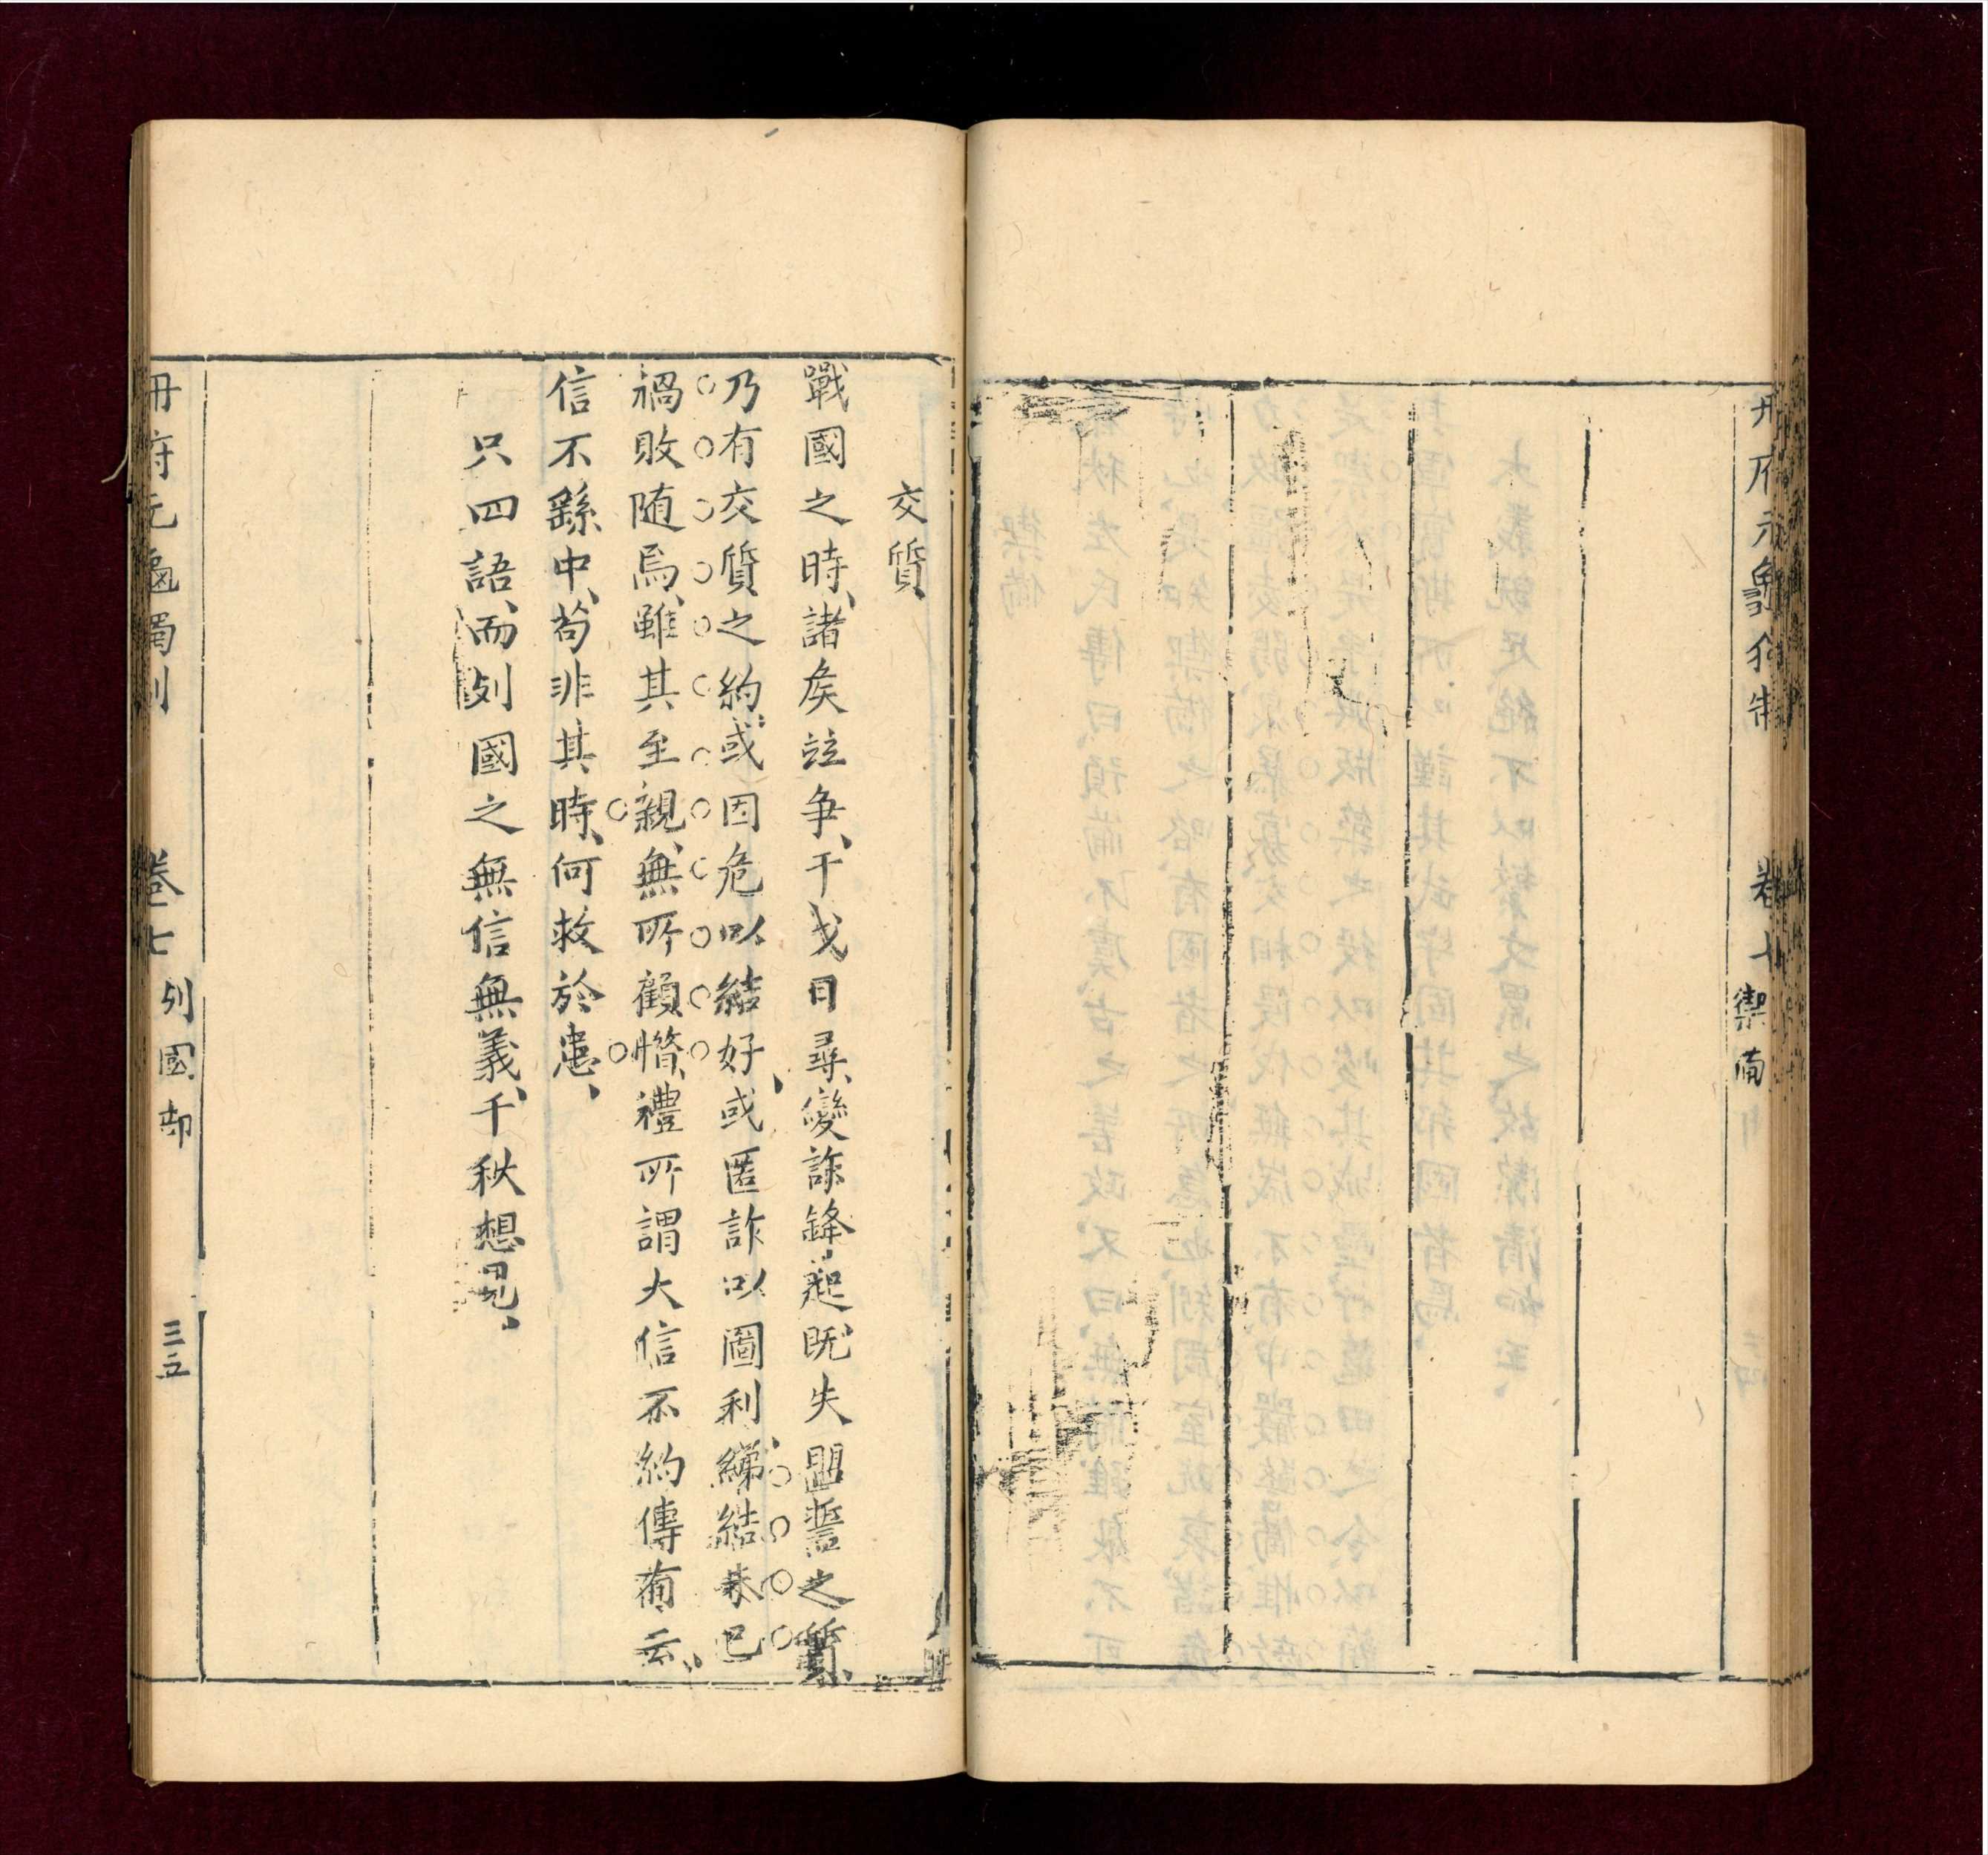 卷七
禦俻
交質
戰國之時諸矦竝争干戈日尋變詐鋒起旣失盟誓之質
乃有交質之約或因危以結好或匿詐以圖利綈結未已
禍敗随焉雖其至親無所顧憯禮所謂大信不約傳有云
信不繇中苟非其時何救於患
只四語而列國之無信無義千秋想見
冊府元龜獨制
卷七
列國部
三五